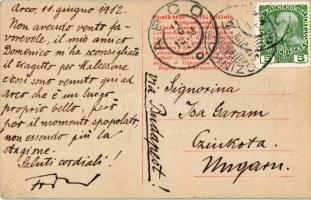 Arco, 11. giugno 1912.
Non avendo vento fa-
vorevole, il mio amico
Domenico m'ha sconsigliato
il tragitto per Malcesine
e così sono venuto qui ad
Arco che è un luogo
proprio bello, però
per il momento spopolato,
non essendo più la
stagione.
Saluti cordiali!
ARCO
Signorina
Isa Garam
Czinkota.
Ungarn.
via Budapest!
5